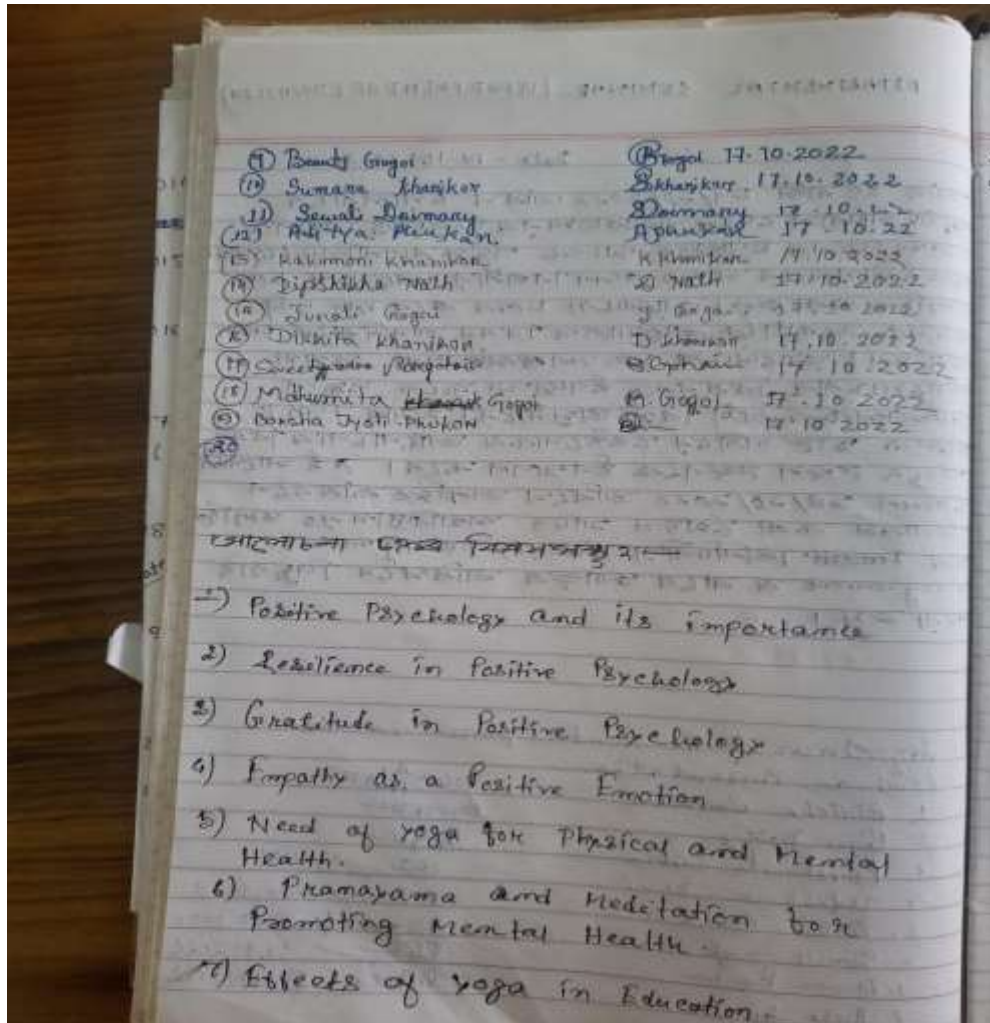 9) Beauty Gogoi BGogoi 17.10.2022
10) Sumana Khanikor SKhanikar. 17.10.2022
11) Sewali Daimary SDaimary 17.10.22
(12) Aditya Phukan. APhukan 17.10.22
(13) Kakumoni Khanikar K Khanikar 17.10.2022
(14) Dipshikha Nath D Nath 17.10.2022
(15) Junali Gogoi J Gogoi 17.10.2022
(16) Dikhita Khanikar D Khanikar 17.10.2022
(17) 17.10.2022
(18) Mdhumita Gogoi M. Gogoi 17.10.2022
(19) Barsha Jyoti PHUKON 17.10.2022
(20)
1) Positive Psychology and its importance
2) Resilience in Positive Psychology
3) Gratitude in Positive Psychology
4) Empathy as a Positive Emotion
5) Need of yoga for Physical and Mental
Health.
6) Pranayama and Meditation for
Promoting Mental Health.
7) Effects of yoga in Education.